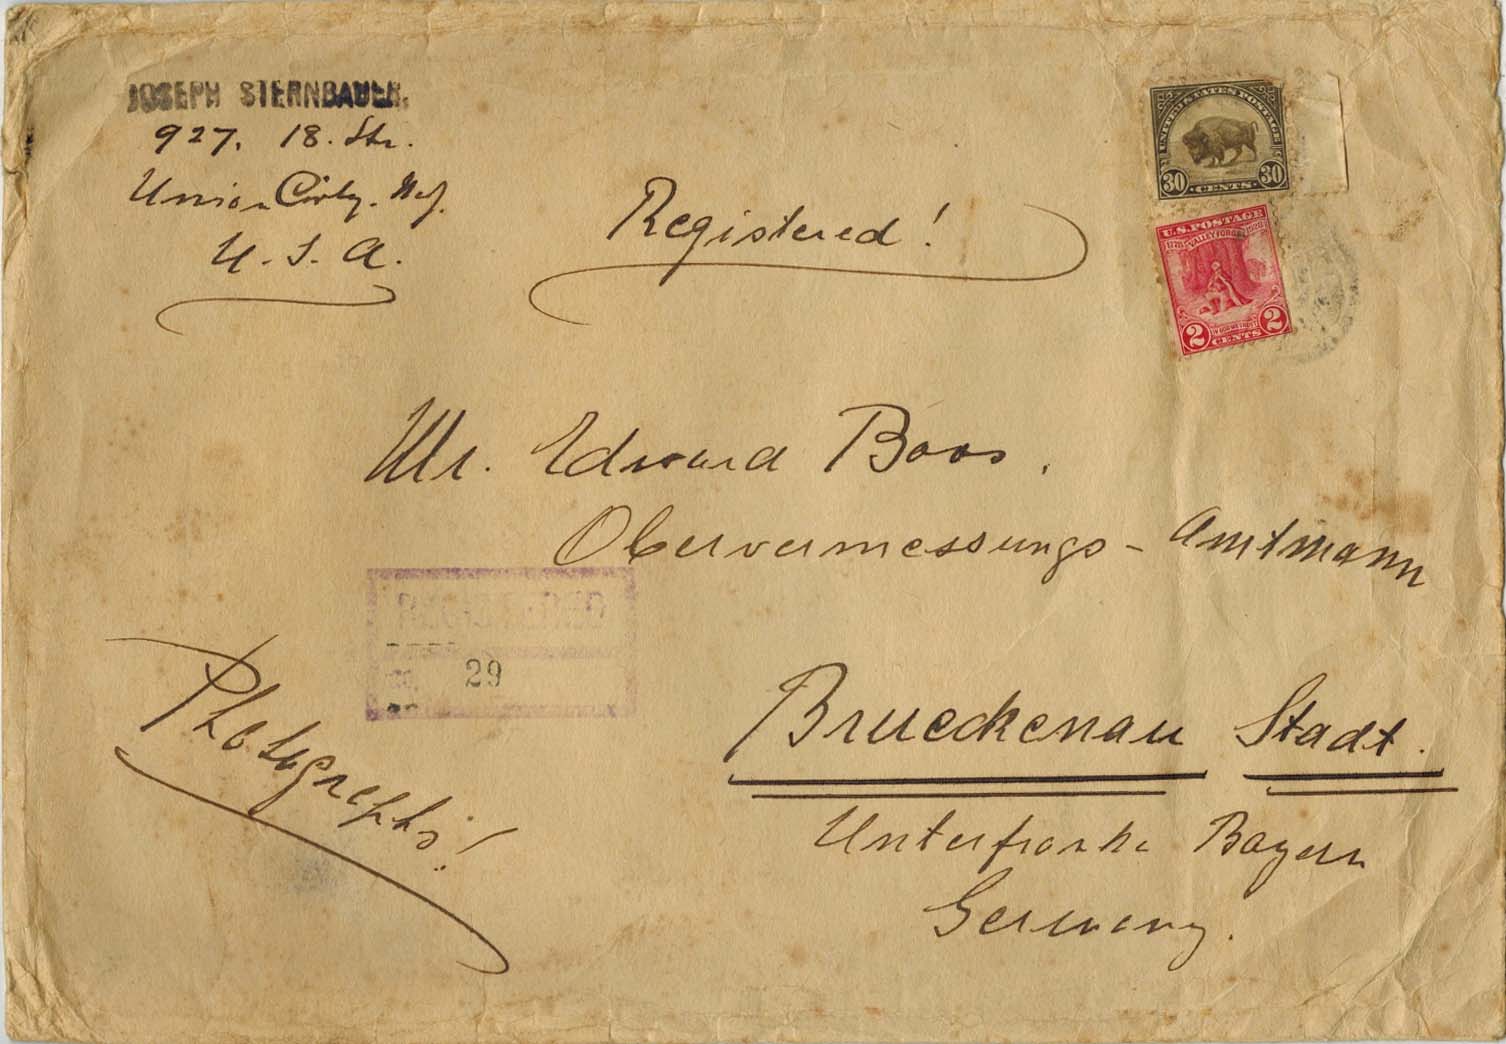 JOSEPH STERNBAUER.
927. 18. Str.
Union City. N.J.
U. S. A.
Registered!
UNITED STATES POSTAGE
30 CENTS 30
U.S. POSTAGE
1778 VALLEY FORGE 1928
IN GOD WE TRUST
2 CENTS 2
Mr. Edward Boos.
Obervermessungs - Amtmann
REGISTERED
NO. 29
Photographs!
Brueckenau Stadt.
Unterfranke Bayern
Germany.